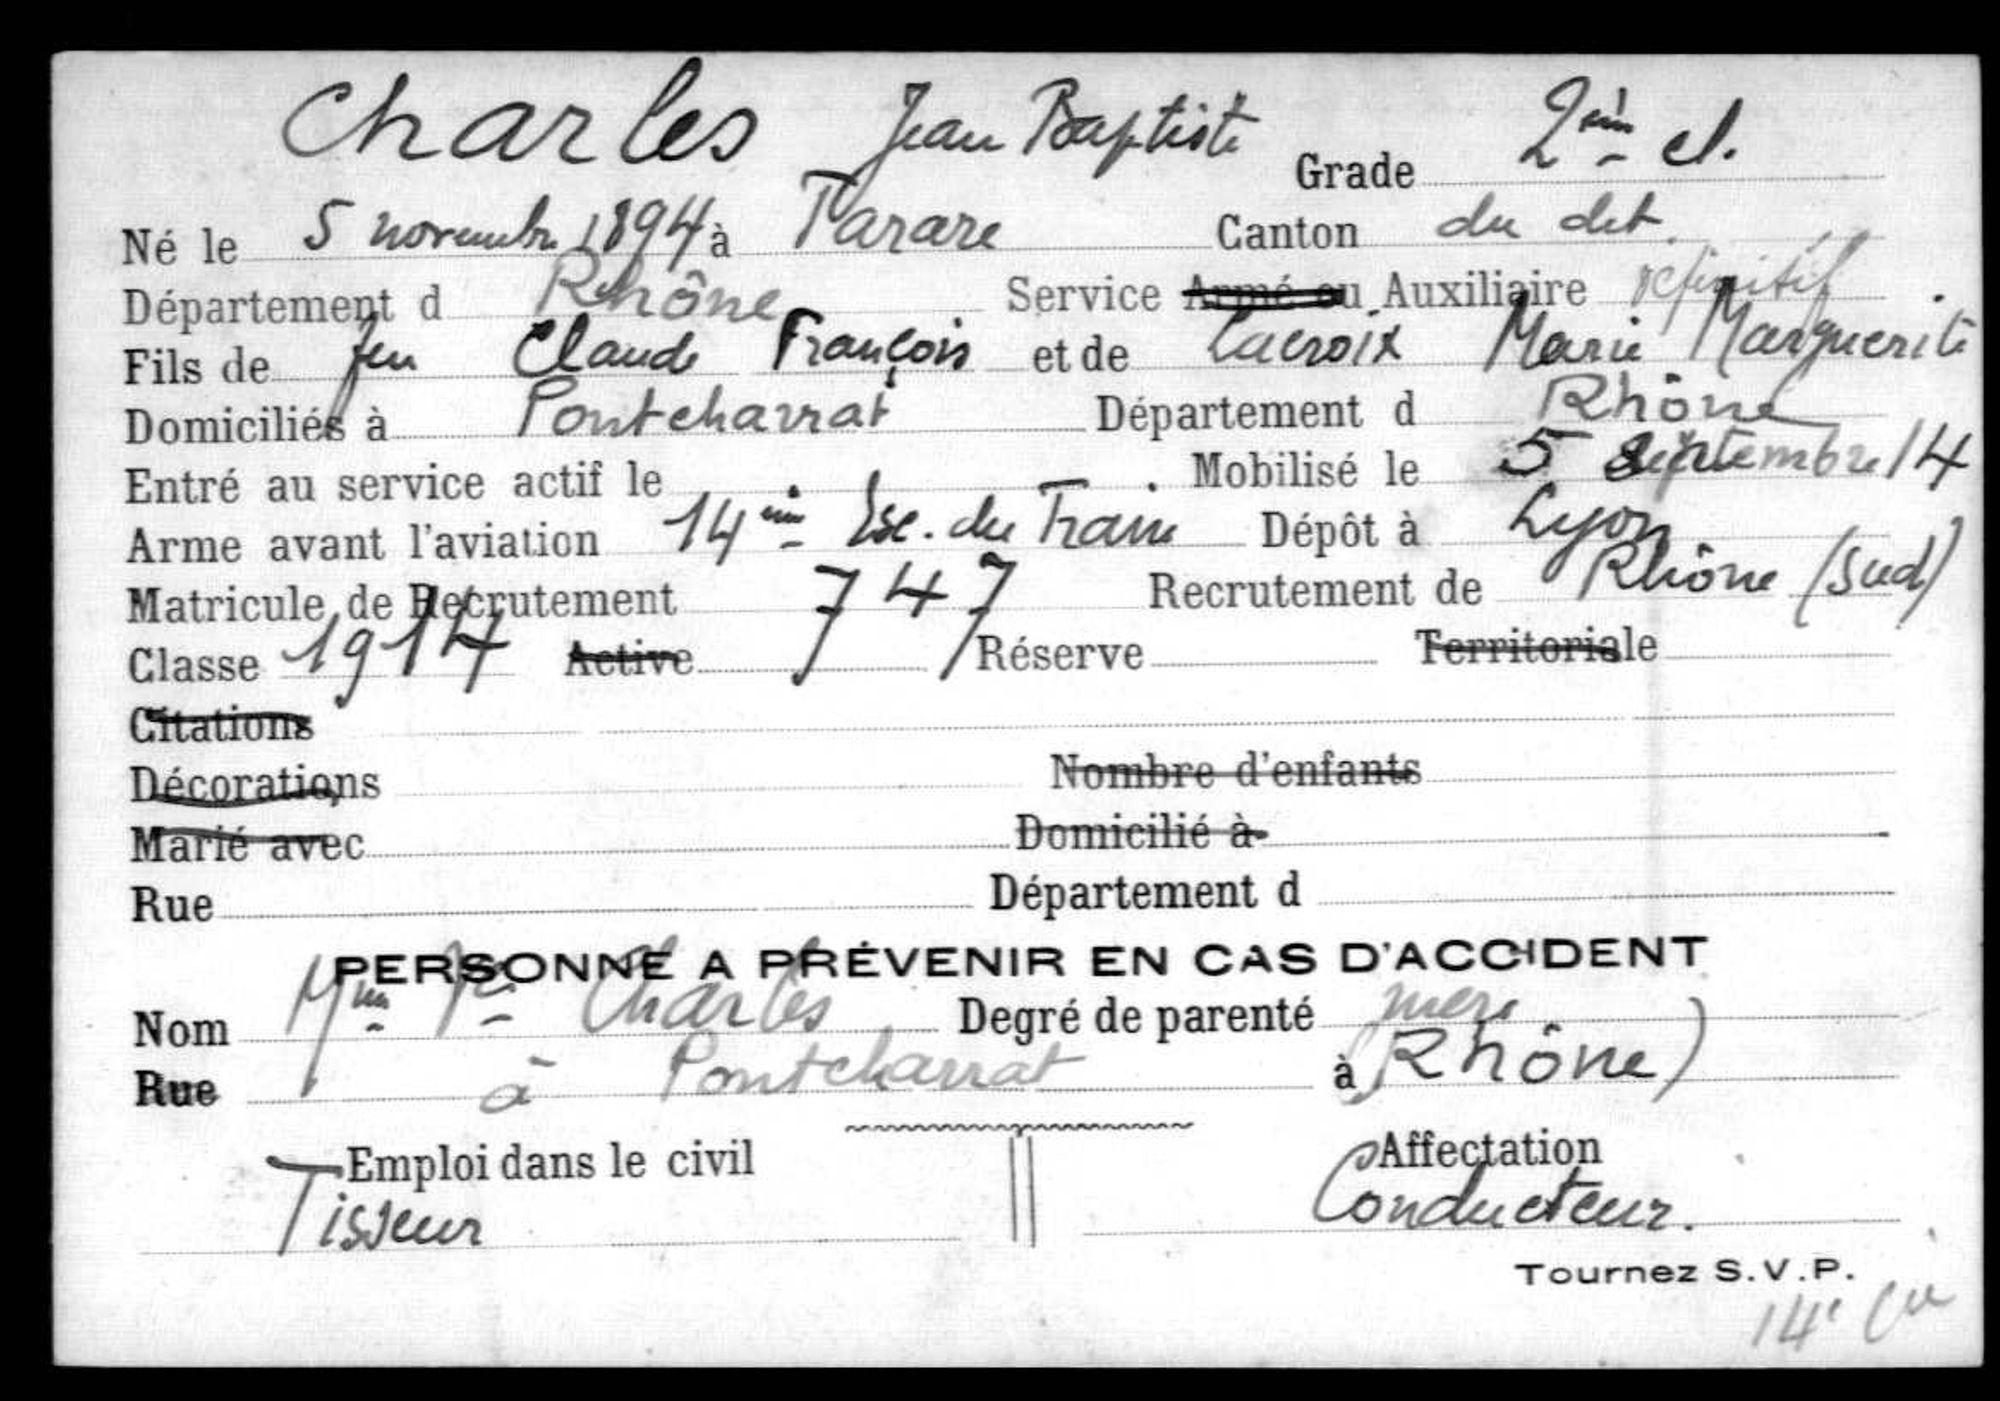 Charles Jean Baptiste Grade 2ème cl.
Né le 5 novembre 1894 à Tarare Canton du dit
Département d Rhône Service Armé ou Auxiliaire définitif
Fils de feu Claude François et de Lacroix Marie Marguerite
Domiciliés à Pontcharrat Département d Rhône
Entré au service actif le Mobilisé le 5 septembre 14
Arme avant l'aviation 14ème Esc. du Train Dépôt à Lyon
Matricule de Recrutement 747 Recrutement de Rhône (Sud)
Classe 1914 Active Réserve Territoriale
Citations
Décorations Nombre d'enfants
Marié avec Domicilié à
Rue Département d
PERSONNE A PRÉVENIR EN CAS D'ACCIDENT
Nom Mme Ve Charles Degré de parenté mère
Rue à Pontcharrat à Rhône)
Emploi dans le civil Affectation
Tisseur Conducteur.
Tournez S.V.P.
14e